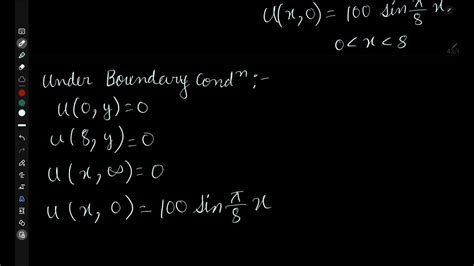 u(x,0) = 100 sin π/8 x.
0<x<8
Under Boundary Condⁿ:-
u(0,y)=0
u(8,y)=0
u(x,∞)=0
u(x,0)=100 sin π/8 x